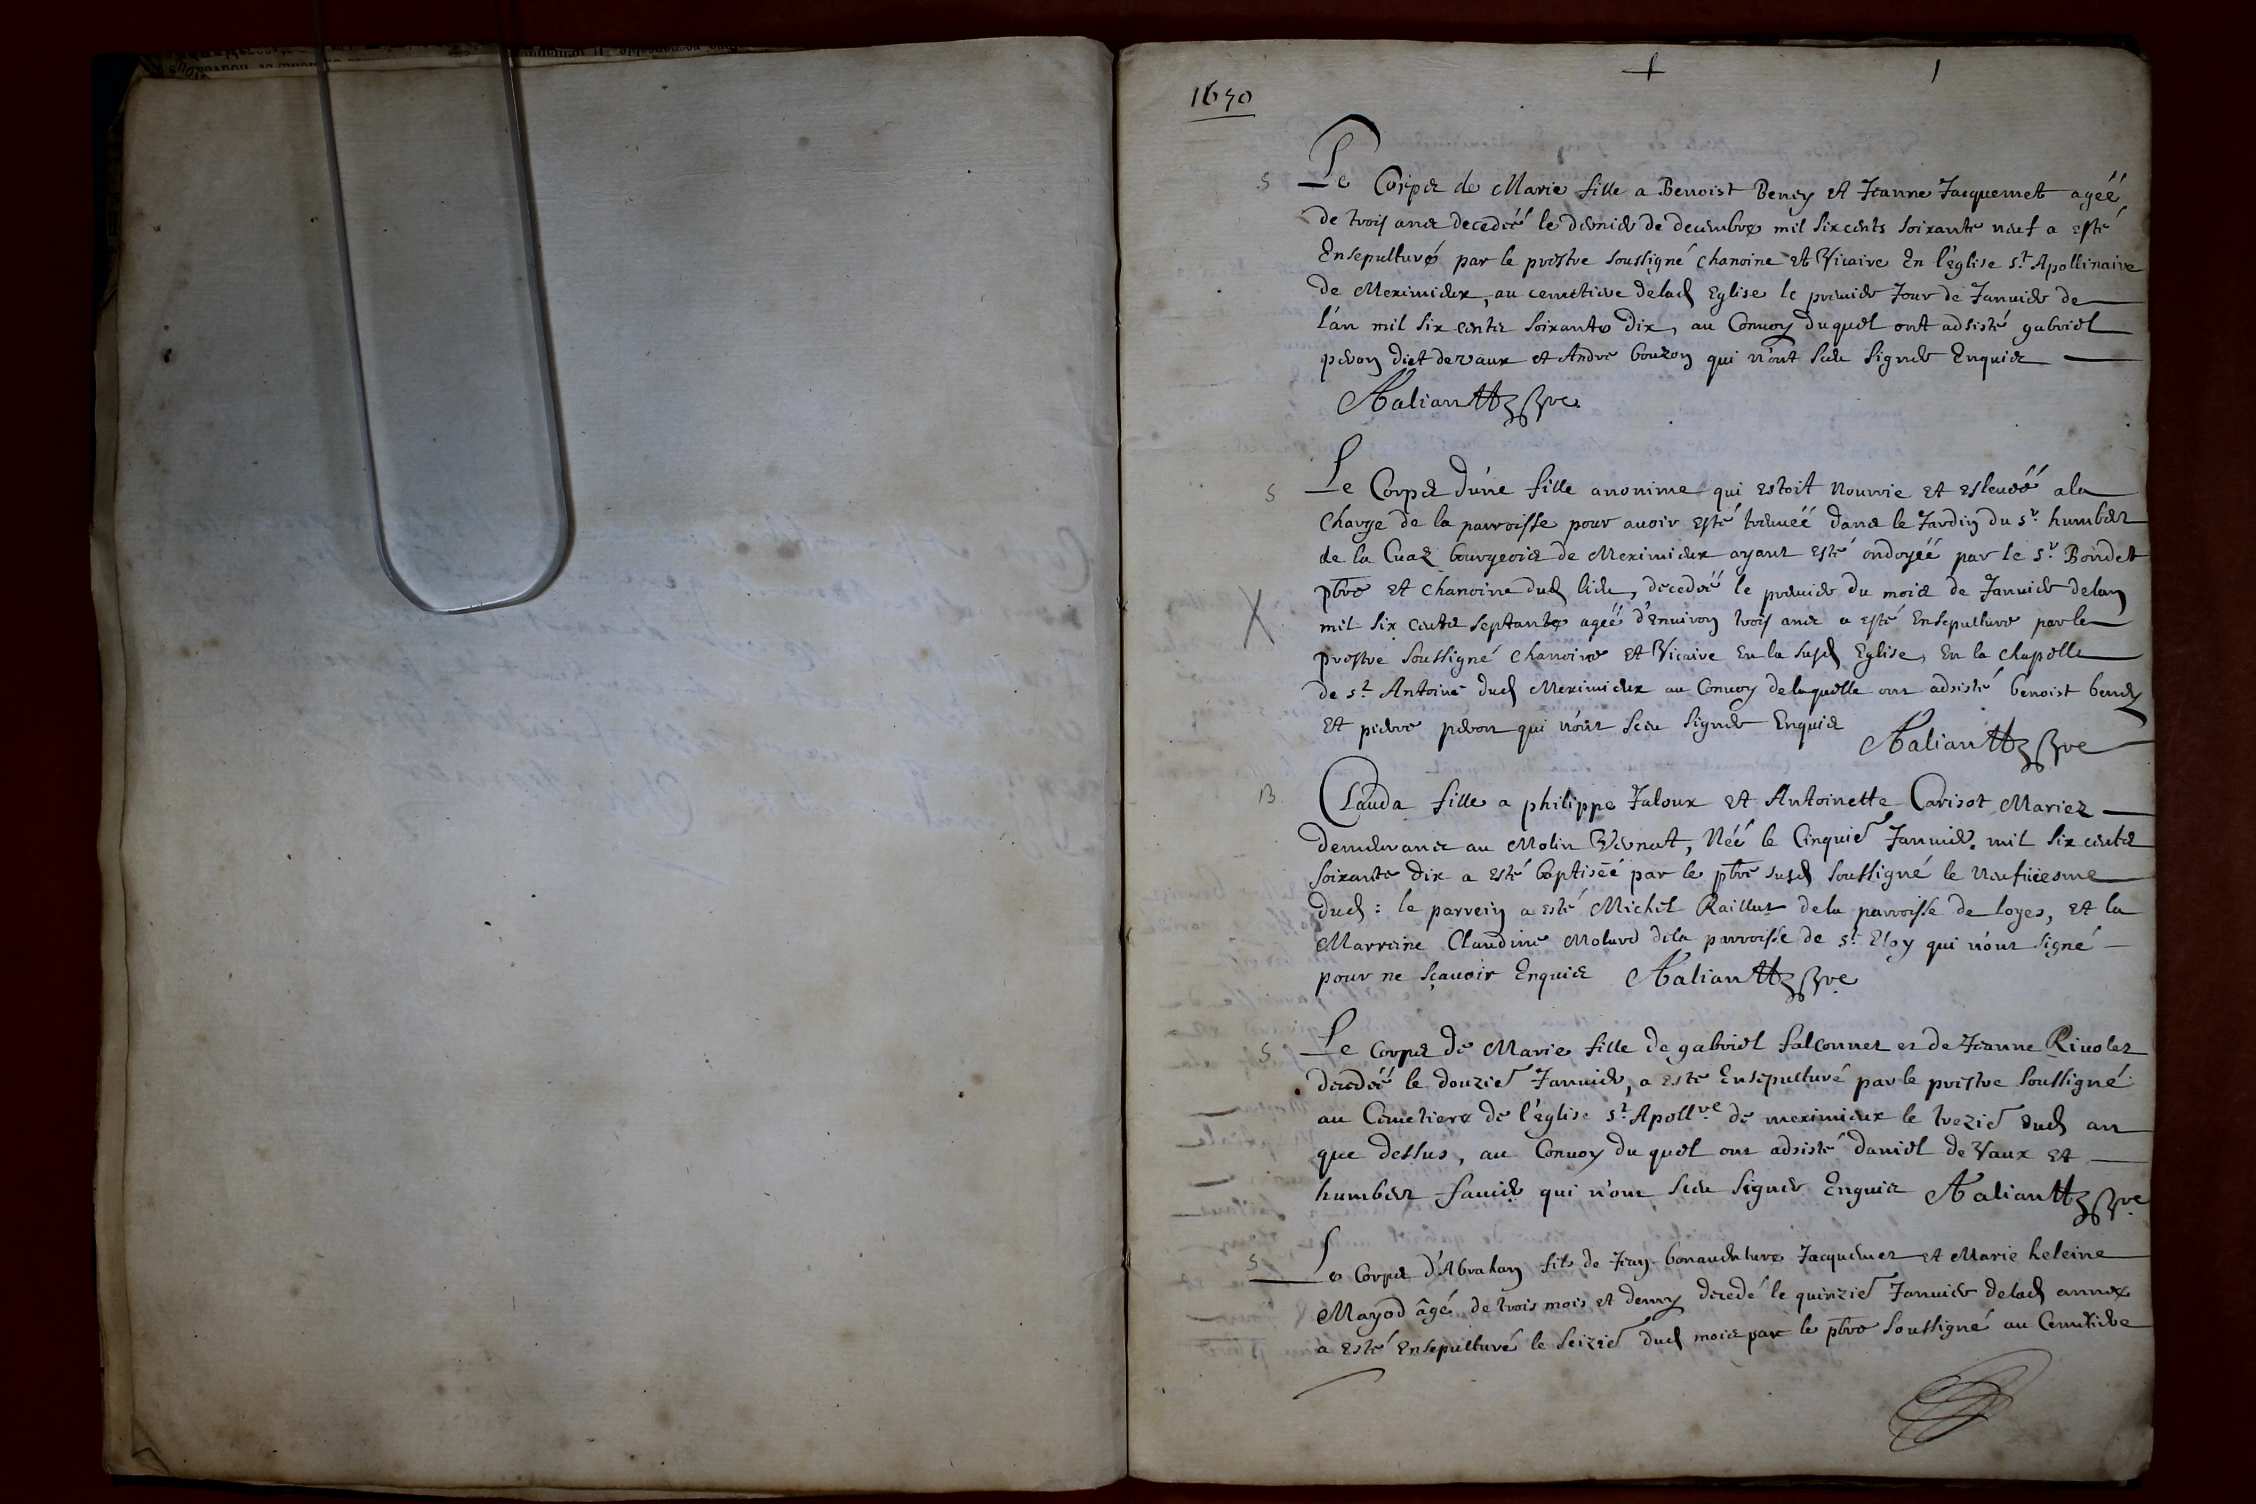 1670
+ 1
S Le Corps de Marie fille a Benoist Beney et Jeanne Jacquemet agéé
de trois ans decedéé le dernier de decembre mil six cents soixante neuf a esté
Ensepulturé par le prestre soussigné chanoine et Vicaire En l'église st Apollinaire
de Meximieux, au cemetiere delad Eglise le premier Jour de Janvier de
l'an mil six cents soixante dix, au Convoy duquel ont adsisté gabriel
peron diet devaux et André bouzon qui n'ont sceu signer Enquis
S Le Corps d'une fille anonime qui estoit nourrie et esleuéé ala
charge de la parroisse pour auoir esté treuuéé dans le Jardin du sr humbert
de la Cuaz bourgeois de Meximieux ayant esté ondoyéé par le sr Bondet
pbre et chanoine dud lieu, decedéé le premier du mois de Januier delan
X mil six cents septante agéé d'enuiron trois ans a esté Ensepulturé par le
prestre soussigné chanoine et Vicaire En la susd Eglise, En la chapelle
de st Antoine dud Meximieux au Conuoy delaquelle ont adsisté benoist beney
et pierre peron qui n'ont sceu signer Enquis
B Clauda fille a philippe Jaloux et Antoinette Carisot Mariez
demeurans au Molin Vernat, Néé le Cinquie Januier mil six cents
soixante dix a esté baptiséé par le pbre susd soussigné le neufuiesme
dud: le parrein a esté Michel Raillat dela parroisse de loyes, et la
Marreine Claudine Molard dela parroisse de st Eloy qui n'ont signé
pour ne sçauoir Enquis
S Le Corps de Marie fille de gabriel falconnet et de Jeanne Riuolet
decedéé le douzie Januier, a esté Ensepulturé par le prestre soussigné
au Cemetiere de l'Eglise st Apollre de meximieux le trezie dud an
que dessus, au Conuoy du quel ont adsisté daniel de Vaux et
humbert fauier qui n'ont sceu signer Enquis
S Le Corps d'Abraham fils de Jean bonauenture Jacquemet et Marie heleine
Mayod âgé de trois mois et demy decedé le quinzie Januier delad année
a esté Ensepulturé le seizie dud mois par le pbre soussigné au Cemetiere